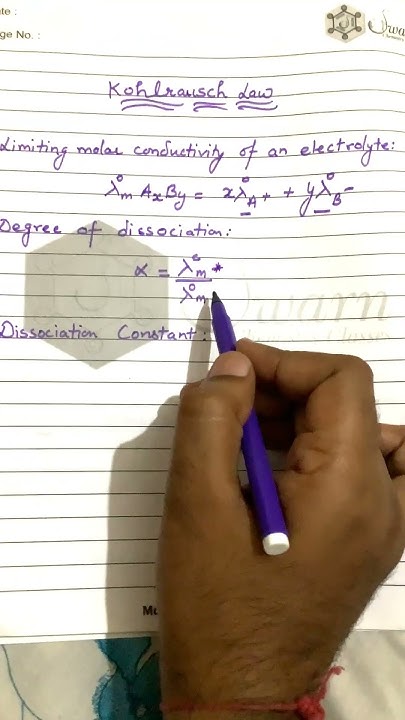 ate :
ge No. :
Kohlrausch Law
Limiting molar conductivity of an electrolyte:
λ°m AxBy = xλ°A+ + yλ°B-
Degree of dissociation:
α = λᶜm / λ°m
Dissociation Constant :